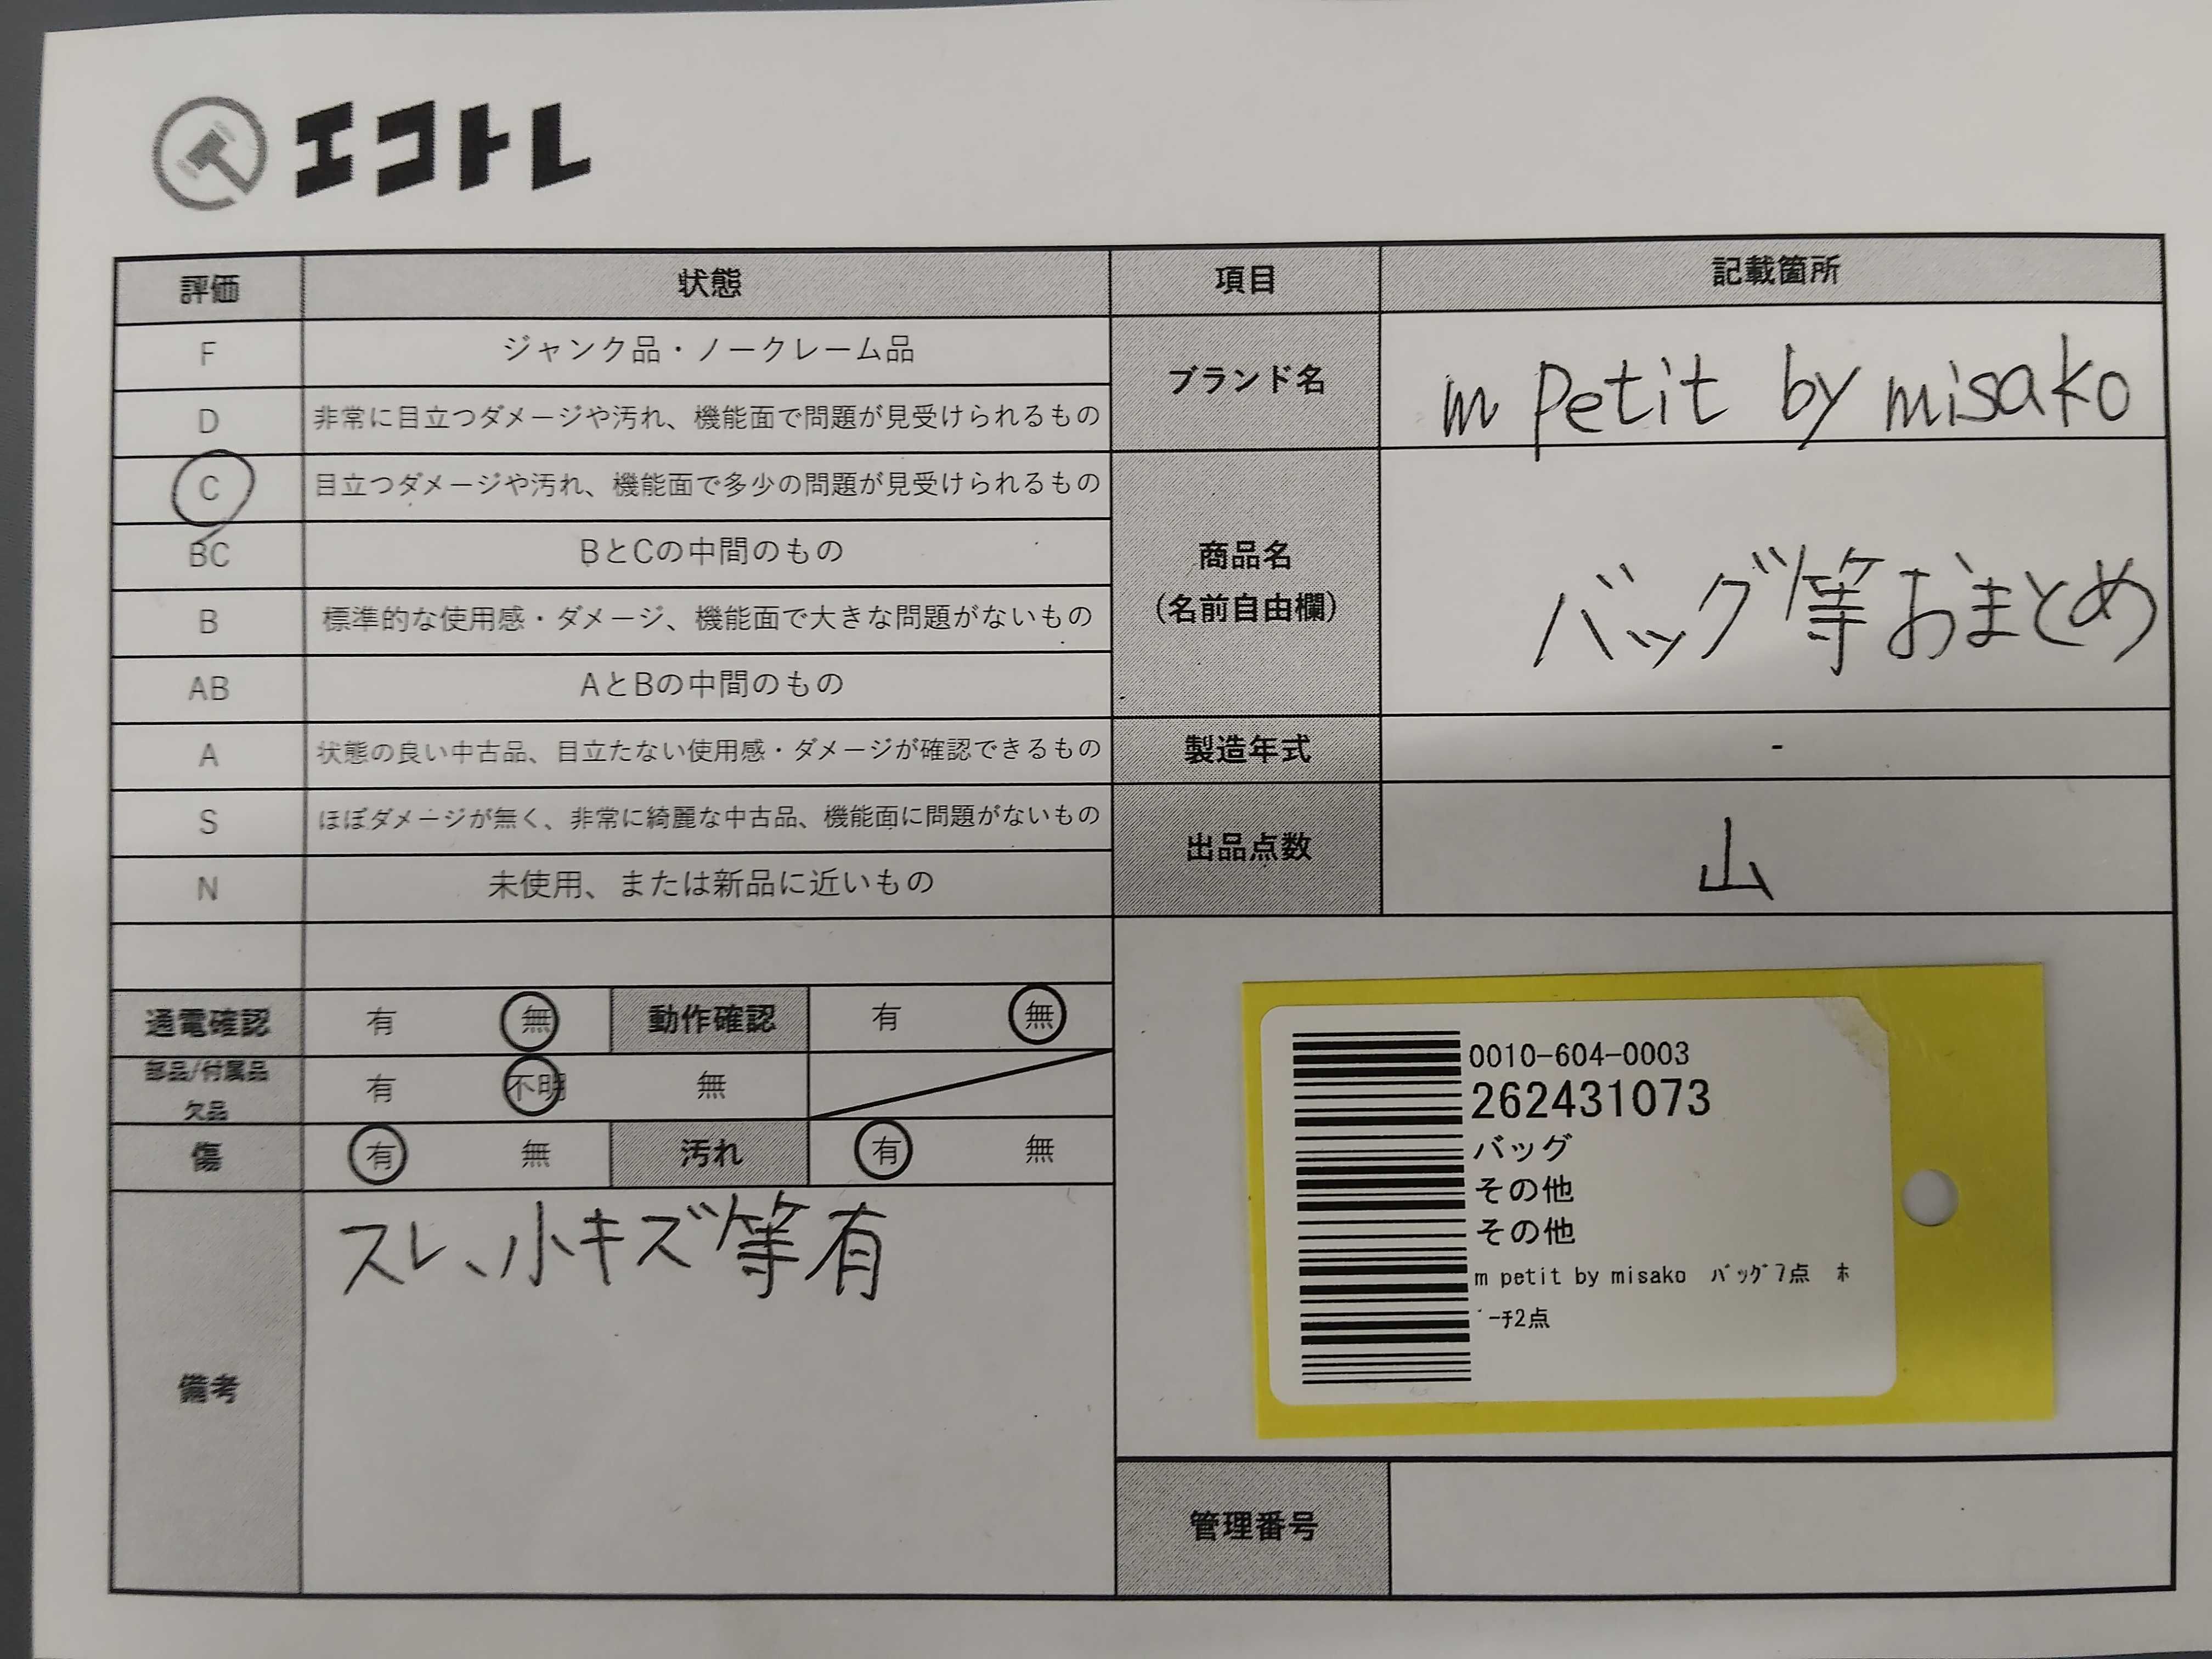 エコトレ
評価 状態 項目 記載箇所
F ジャンク品・ノークレーム品
D 非常に目立つダメージや汚れ、機能面で問題が見受けられるもの
ブランド名 m petit by misako
C 目立つダメージや汚れ、機能面で多少の問題が見受けられるもの
BC BとCの中間のもの
B 標準的な使用感・ダメージ、機能面で大きな問題がないもの
商品名
(名前自由欄)
バッグ等おまとめ
AB AとBの中間のもの
A 状態の良い中古品、目立たない使用感・ダメージが確認できるもの
製造年式 -
S ほぼダメージが無く、非常に綺麗な中古品、機能面に問題がないもの
出品点数 山
N 未使用、または新品に近いもの
通電確認 有 無 動作確認 有 無
部品/付属品
欠品
有 不明 無
傷 有 無 汚れ 有 無
備考 スレ、小キズ等有
0010-604-0003
262431073
バッグ
その他
その他
m petit by misako ﾊﾞｯｸﾞ7点 ﾎ
ﾟｰﾁ2点
管理番号